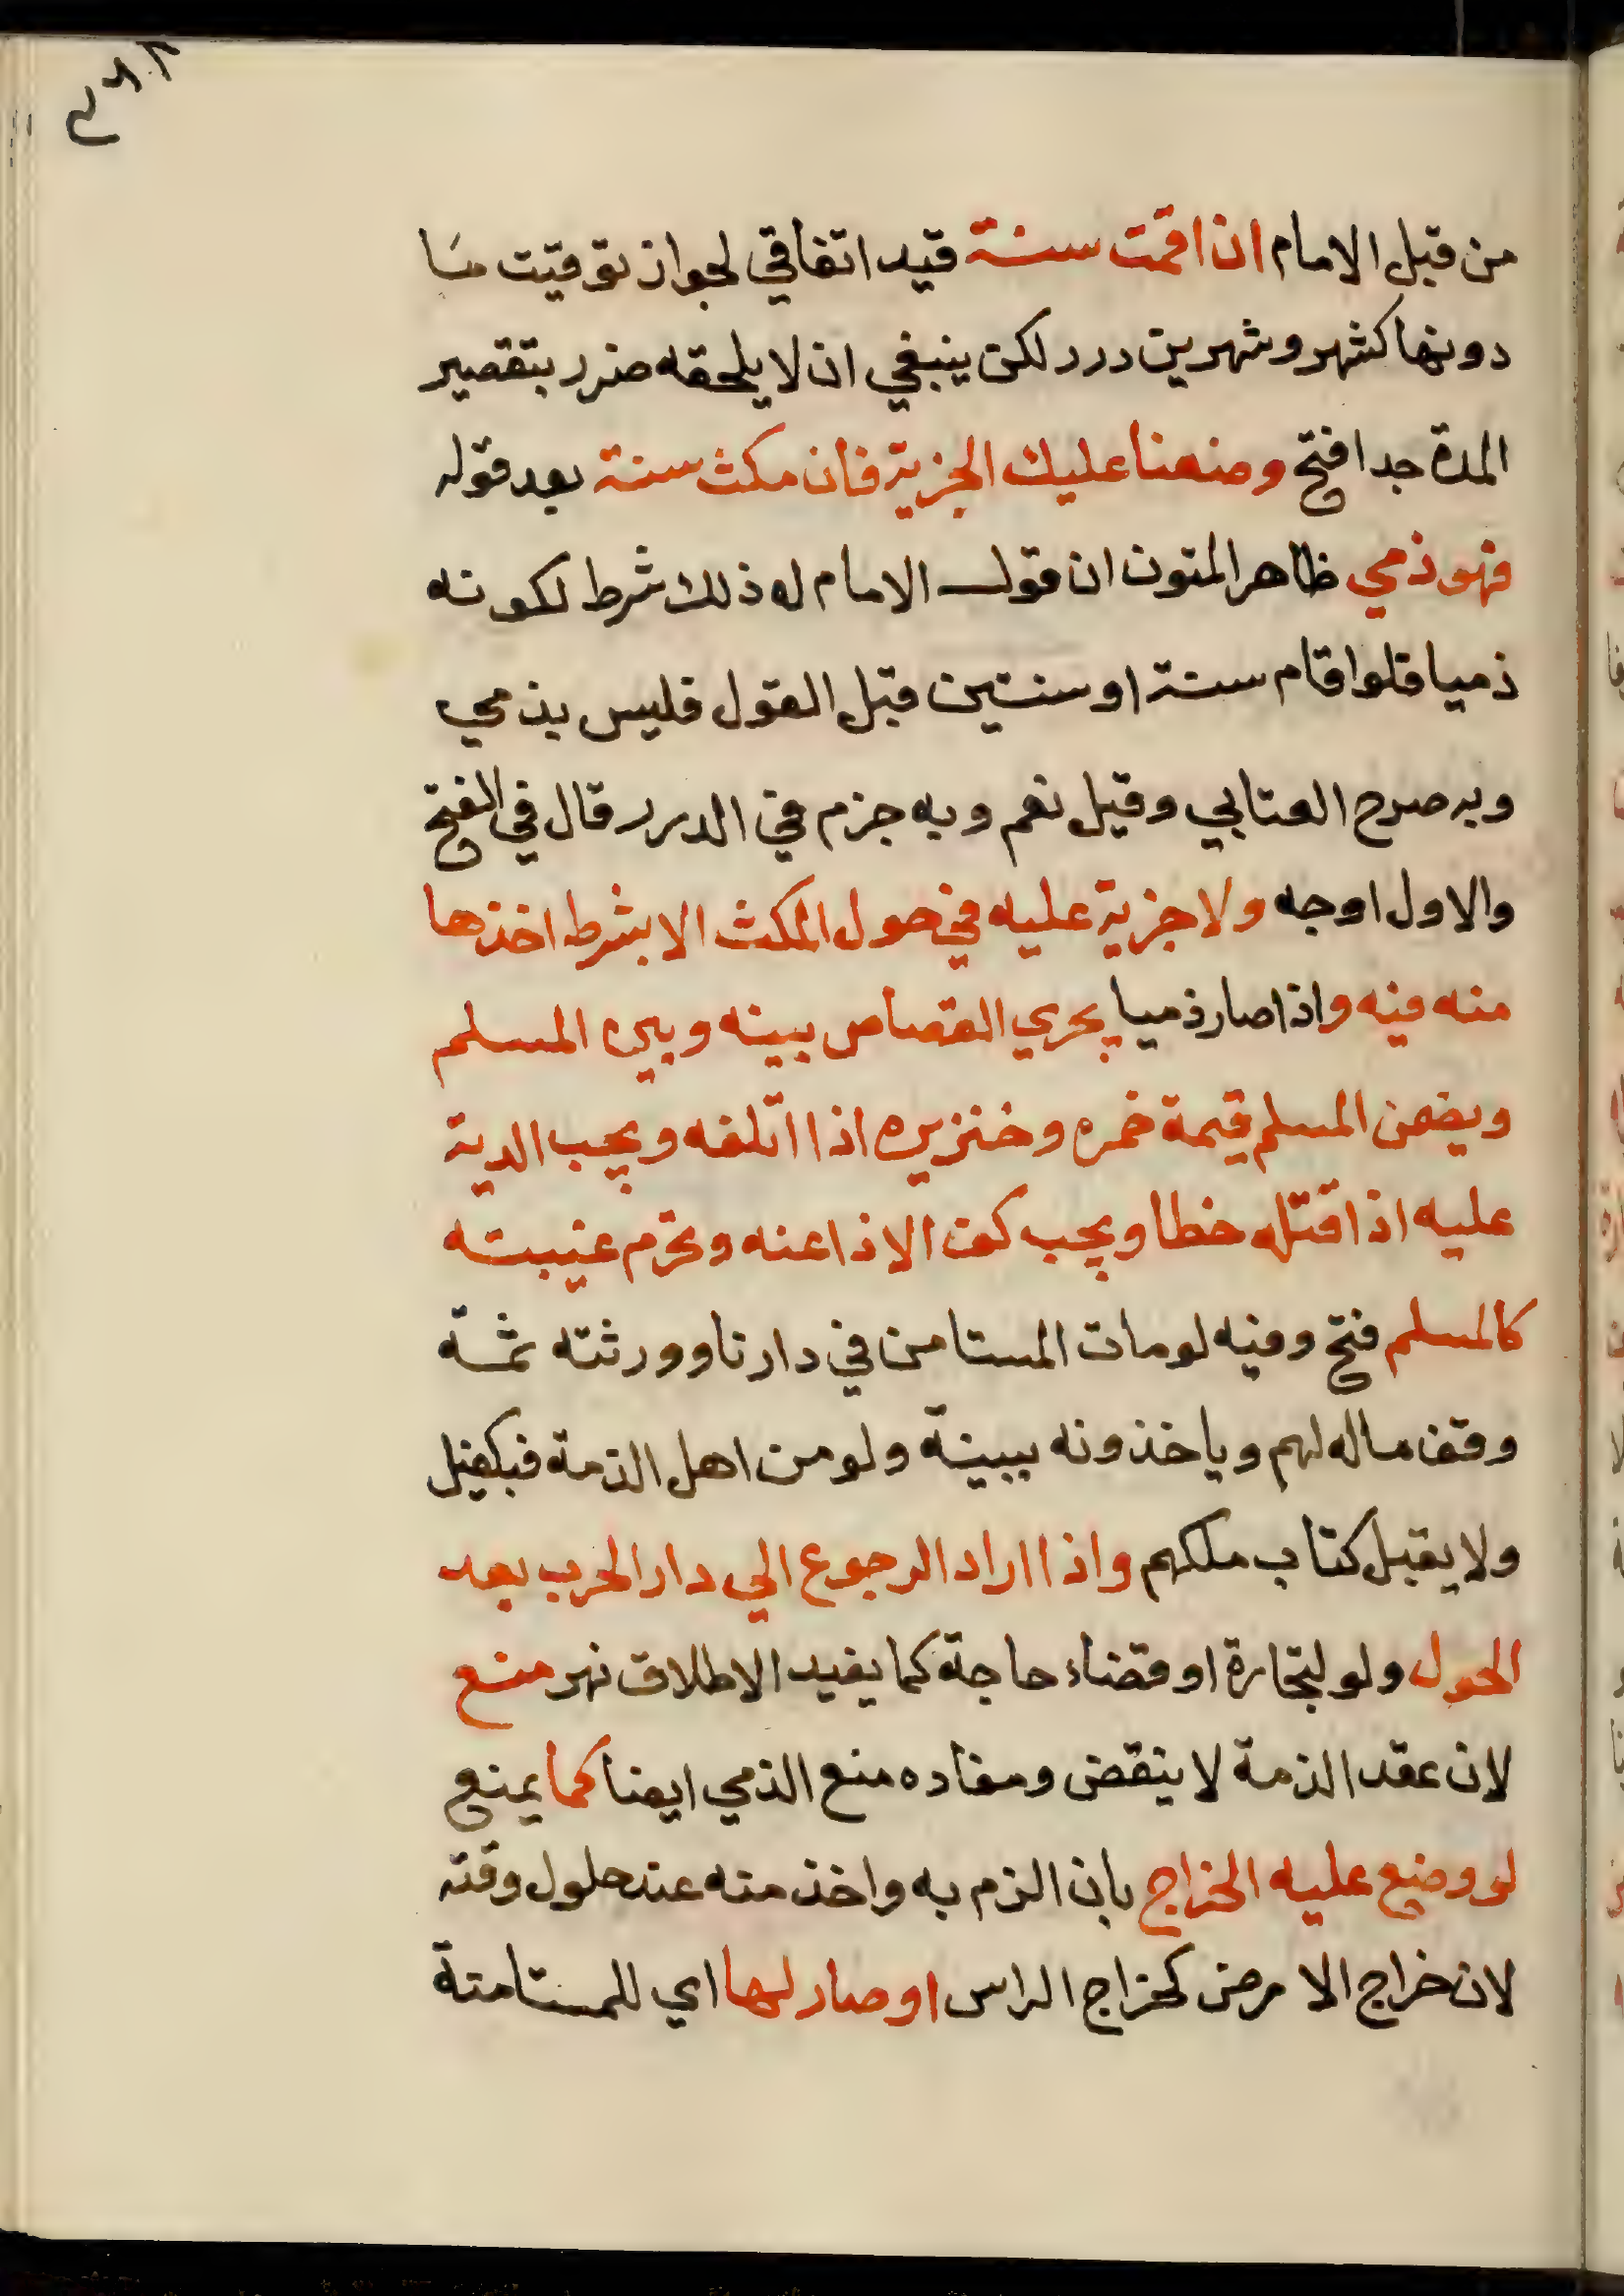 من قبل الامام ان اقمت سنة قيد اتفاقي لجواز توقيت ما
دونها كشهر وشهرين درر لكن ينبغي ان لا يلحقه ضرر بتقصير
المدة جدا فتح وضعنا عليك الجزية فان مكث سنة بعد قوله
فهو ذمي ظاهر المتون ان قول الامام له ذلك شرط لكونه
ذميا فلو اقام سنة او سنتين قبل القول فليس بذمي
وبه صرح العتابي وقيل نعم وبه جزم في الدرر قال في الفتح
والاول اوجه ولا جزية عليه في حول المكث الا بشرط اخذها
منه فيه واذا صار ذميا يجري القصاص بينه وبين المسلم
ويضمن المسلم قيمة خمره وخنزيره اذا اتلفه ويجب الدية
عليه اذا قتله خطا ويجب كف الاذا عنه وتحرم غيبته
كالمسلم فتح وفيه لو مات المستامن في دارنا وورثته ثمة
وقف ماله لهم وياخذونه ببينة ولو من اهل الذمة فبكفيل
ولا يقبل كتاب ملكهم واذا اراد الرجوع الي دار الحرب بعد
الحول ولو لتجارة او قضاء حاجة كما يفيد الاطلاق نهر منع
لان عقد الذمة لا ينقض ومفاده منع الذمي ايضا كما يمنع
لو وضع عليه الخراج بان الزم به واخذ منه عند حلول وقته
لان خراج الارض كخراج الراس او صار لها اي للمستامنة